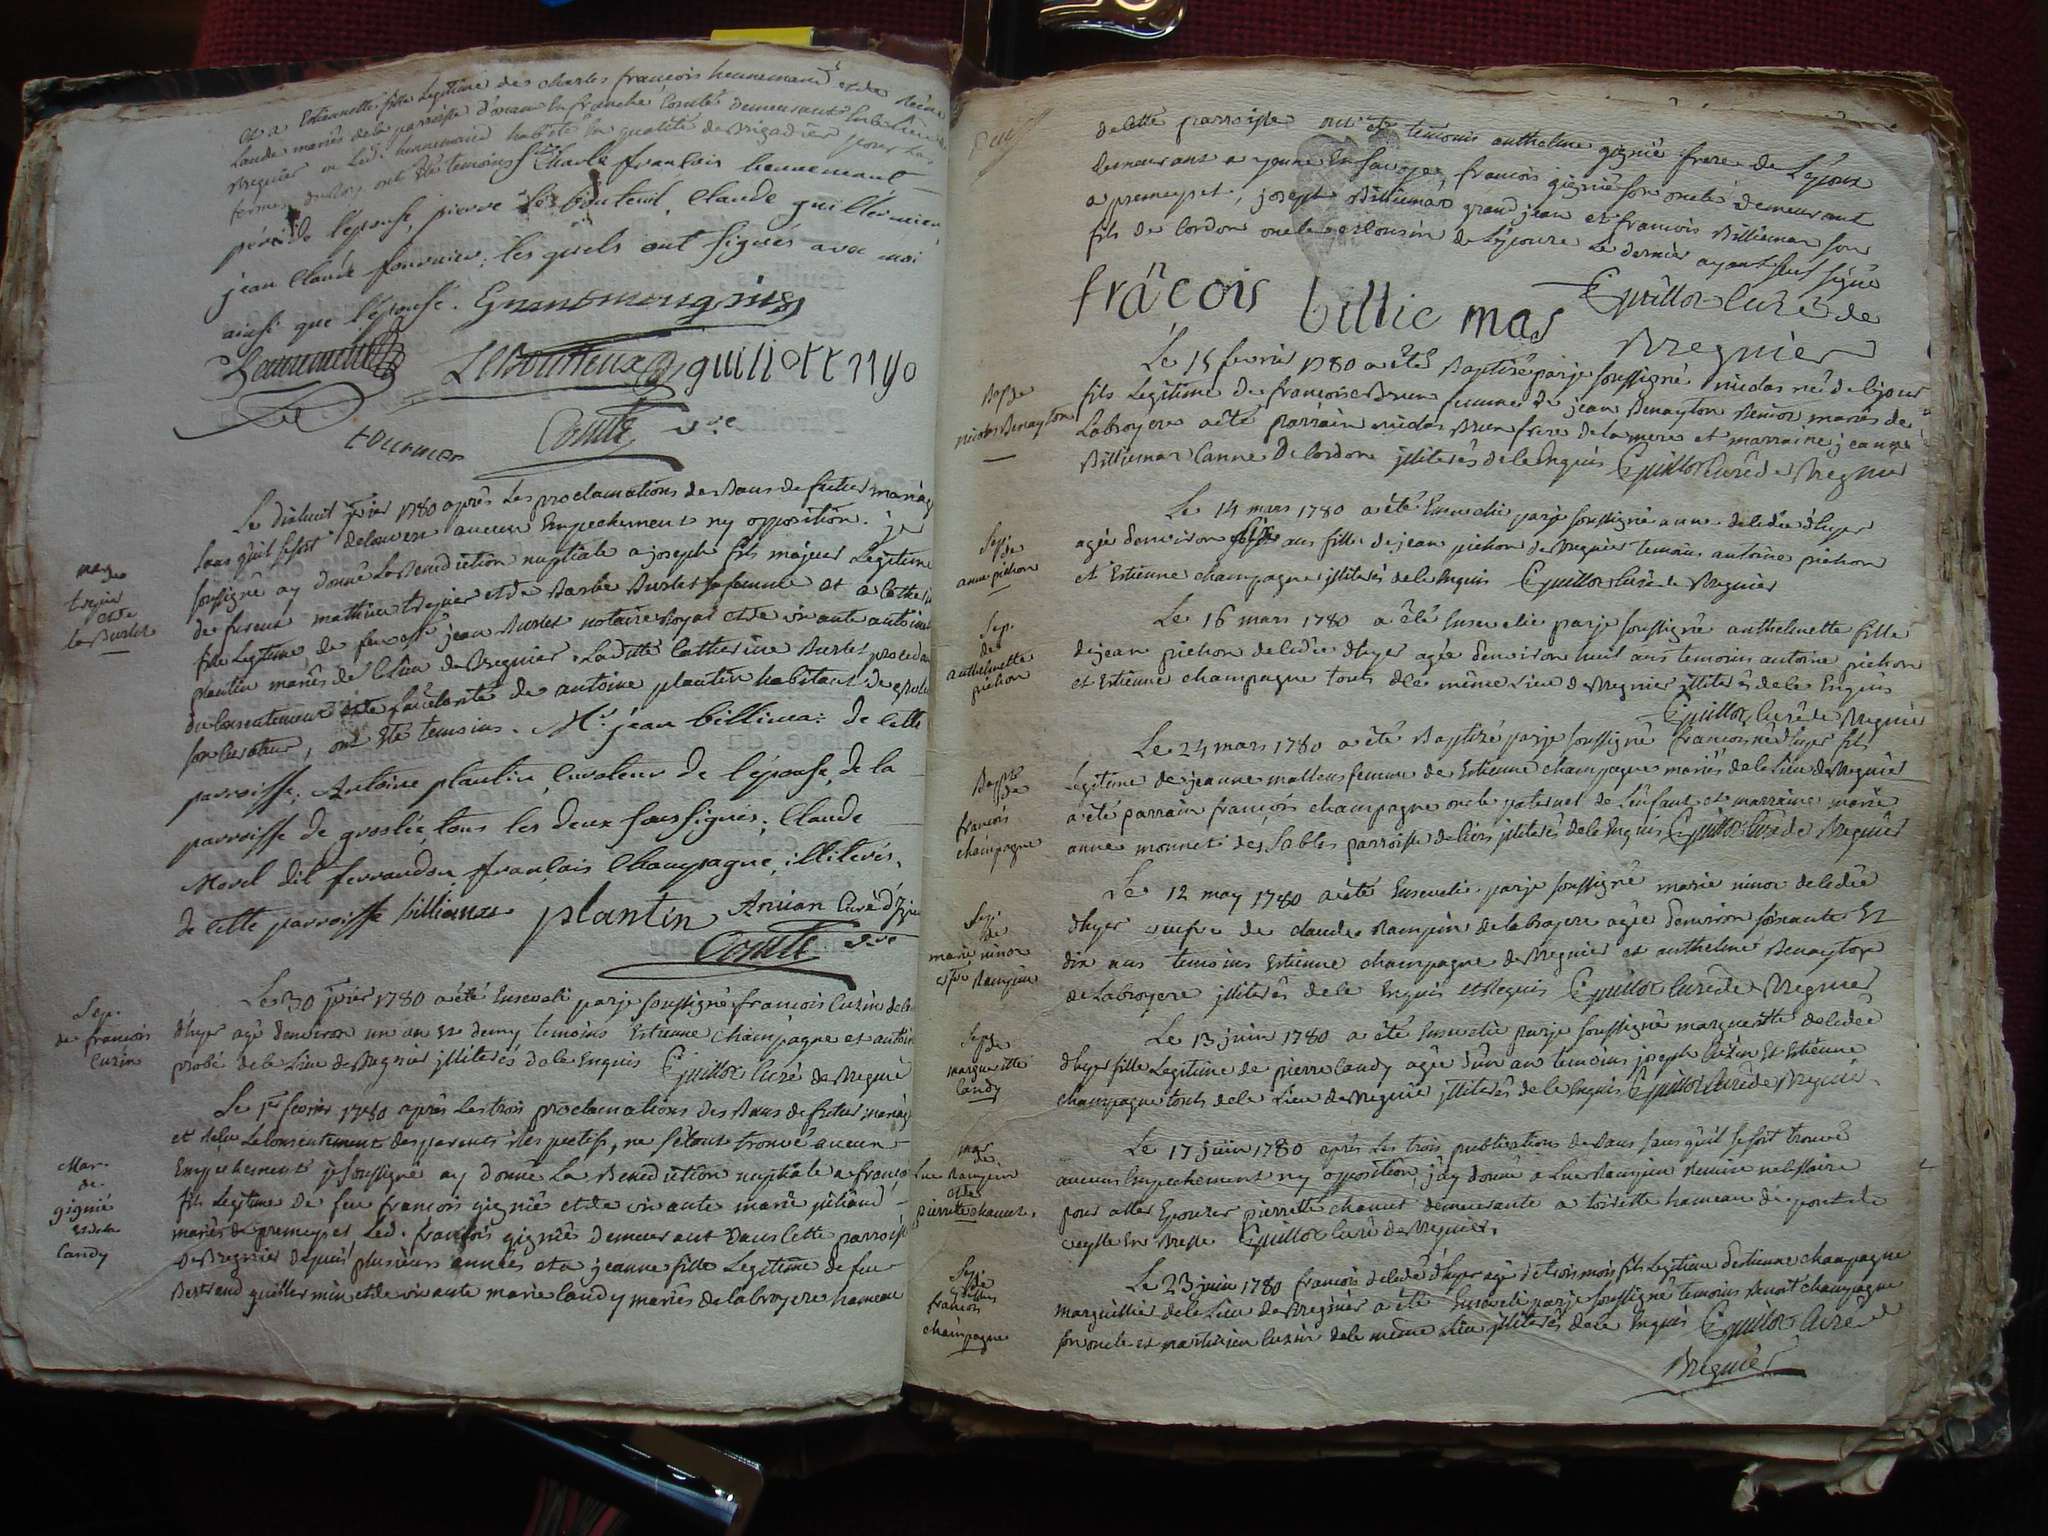 et a Estiennette fille Legitime des charles francois hennemand et de Reine
Laude mariés de la parroisse d'ornan En franche Comté Demeurants
Bregnier ou Led. hennemand habite En qualité de Brigadier pour Les
fermes du Roy ont Eté temoins Charle francois hennemant
pére de l'épouse, pierre le bouteux, Claude guillermin,
jean Claude fournier, lesquels ont signés avec moi
ainsi que l'épouse.
Comte vre
Le dixhuit jvier 1780 après Les proclamations des Bans de futur mariage
sans qu'il se soit decouvert aucun Empechement ny opposition. je
soussigné ay donné La Benediction nuptiale a joseph fils majeur Legitime
de fureux mathieu tregnier et de Barbe Burlet sa femme et a Catherine
fille Legitime de feu jean Burlet notaire Royal et de vivante antoinette
plantin mariés de ce Lieu de Bregnier. Laditte Catherine Burlet procedant
du consentement et de l'autorité de antoine plantin habitant de groslée
son curateur, ont Eté temoins. Mr. jean billiemas de cette
parroisse, Antoine plantin, curateur de l'épouse, de la
parroisse de groslée, tous les deux soussignés; Claude
Morel dit ferrandon, françois Champagne, illiterés,
de cette parroisse billiemas plantin curé d'
Comte vre
mar
de
tregnier
et de
la Burlet
Sep.
de francois
Cuzin
Le 30 jvier 1780 a été Enseveli par je soussigné francois Cuzin de
d'hyer agé denviron un an et demy temoins Estienne Champagne et antoine
probé de ce Lieu de Bregnier illiterés de ce Enquis Guillot Curé de Bregnié
Mar.
de
gignié
et de la
Candy
Le 1er fevrier 1780 après Les trois proclamations des Bans de futur mariage
et Reçu Le Consentement des parents Respectifs, ne s'étant trouvé aucun
Empechement je soussigné ay donné La Benediction nuptiale a francois
fils Legitime de feu francois gignié et de vivante marie
mariés de premeyset, Led. francois gignié Demeurant Dans Cette parroisse
de Bregnier depuis plusieurs années et a jeanne fille Legitime de feu
Bertrand guillermin et de vivante marie Candy mariés de la broyere hameau
de cette parroisse ont été temoins anthelme gignié frere de L'époux
demeurant a yenne En Savoye, francois gignié son oncle demeurant
a premeyset, joseph Billiemas grand jean et francois Billiemas son
fils de Cordon oncle et Cousin de L'épouse Le dernier ayant seul signé
francois billie mas Guillot Curé de
Bregnier
Bap. de
nicolas Benayton
Le 15 fevrier 1780 a été Baptisé par je soussigné nicolas né de ce jour
fils Legitime de francoise Brun femme de jean Benayton Benior mariés de
Labroyere a été parrain nicolas Brun frere de la mere et marraine jeanne
Billiemas Canne De Cordon illiterés de ce Enquis Guillot Curé de Bregnier
Sep.
de
anne pichon
Le 14 mars 1780 a été Ensevelie par je soussigné anne decedée d'hyer
agée denviron ans fille de jean pichon de Bregnier temoins antoine pichon
et Estienne champagne illiterés de ce Enquis Guillot Curé de Bregnier
Sep.
de
anthelmette
pichon
Le 16 mars 1780 a été Ensevelie par je soussigné anthelmette fille
de jean pichon decedée d'hyer agée denviron huit ans temoins antoine pichon
et Estienne champagne touts de ce même Lieu de Bregnier illiterés de ce Enquis
Guillot Curé de Bregnier
Bapt
de
francois
champagne
Le 24 mars 1780 a été Baptisé par je soussigné francois né d'hyer fils
Legitime de jeanne mattens femme de Estienne champagne mariés de ce Lieu de Bregnier
a été parrain francois champagne oncle paternel de L'enfant et marraine marie
anne monnet des Sables parroisse de Ceirs illiterés de ce Enquis Guillot Curé de Bregnier
Sep.
de
marie ninot
Rampin
Le 12 may 1780 a été Ensevelie par je soussigné marie ninot decedée
d'hyer veufve de claude Rampin de labroyere agée denviron soixante et
dix ans temoins Estienne champagne de Bregnier et anthelme Benayton
de Labroyere illiterés de ce Enquis et Requis Guillot Curé de Bregnier
Sep. de
margueritte
Candy
Le 13 juin 1780 a été Ensevelie par je soussigné margueritte decedée
d'hyer fille Legitime de pierre Candy agée d'un an temoins joseph Cuzin Et Estienne
champagne touts de ce Lieu de Bregnier illiterés de ce Enquis Guillot Curé de Bregnié.
mar
de
Luc Rampin
et de
pierrette chanet.
Le 17 juin 1780 après Les trois publications de Bans sans qu'il se soit trouvé
aucuns Empechement ny opposition, j'ay donné a Luc Rampin Remise necessaire
pour aller Epouser pierrette chanet demeurante a hameau de pont de
veyle En Bresse Guillot Curé de Bregnier.
Sep.
de
francois
champagne
Le 23 juin 1780 francois decedé d'hyer agé de trois mois fils Legitime d'estienne champagne
marguillier de ce Lieu de Bregnier a été Enseveli par je soussigné temoins Benoit champagne
son oncle et Cuzin de ce même Lieu illiterés de ce Enquis Guillot Curé de
Bregnier